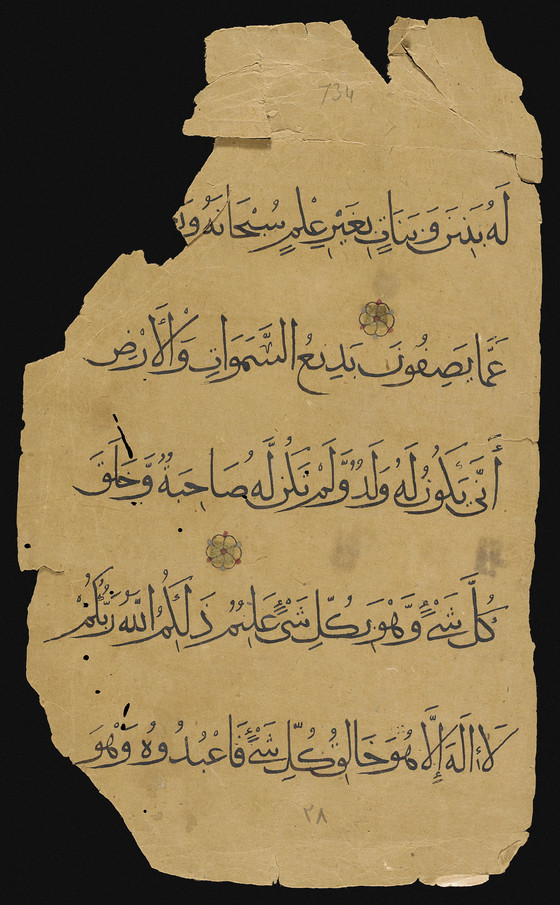 734
لَهُ بَنِينَ وَبَنَاتٍ بِغَيْرِ عِلْمٍ سُبْحَانَهُ وَتَ
عَمَّا يَصِفُونَ بَدِيعُ السَّمَوَاتِ وَالْأَرْضِ
أَنَّى يَكُونُ لَهُ وَلَدٌ وَّلَمْ تَكُنْ لَّهُ صَاحِبَةٌ وَّخَلَقَ
كُلَّ شَيْءٍ وَّهْوَ بِكُلِّ شَيْءٍ عَلِيمٌ ذَلِكُمُ اللَّهُ رَبُّكُمْ
لَا إِلَهَ إِلَّا هُوَ خَالِقُ كُلِّ شَيْءٍ فَاعْبُدُوهُ وَهْوَ
٢٨